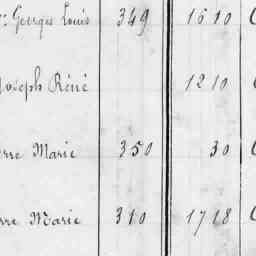 Georges Louis 349 1610
Joseph Réné 1210
rre Marie 350 30
rre Marie 310 1718